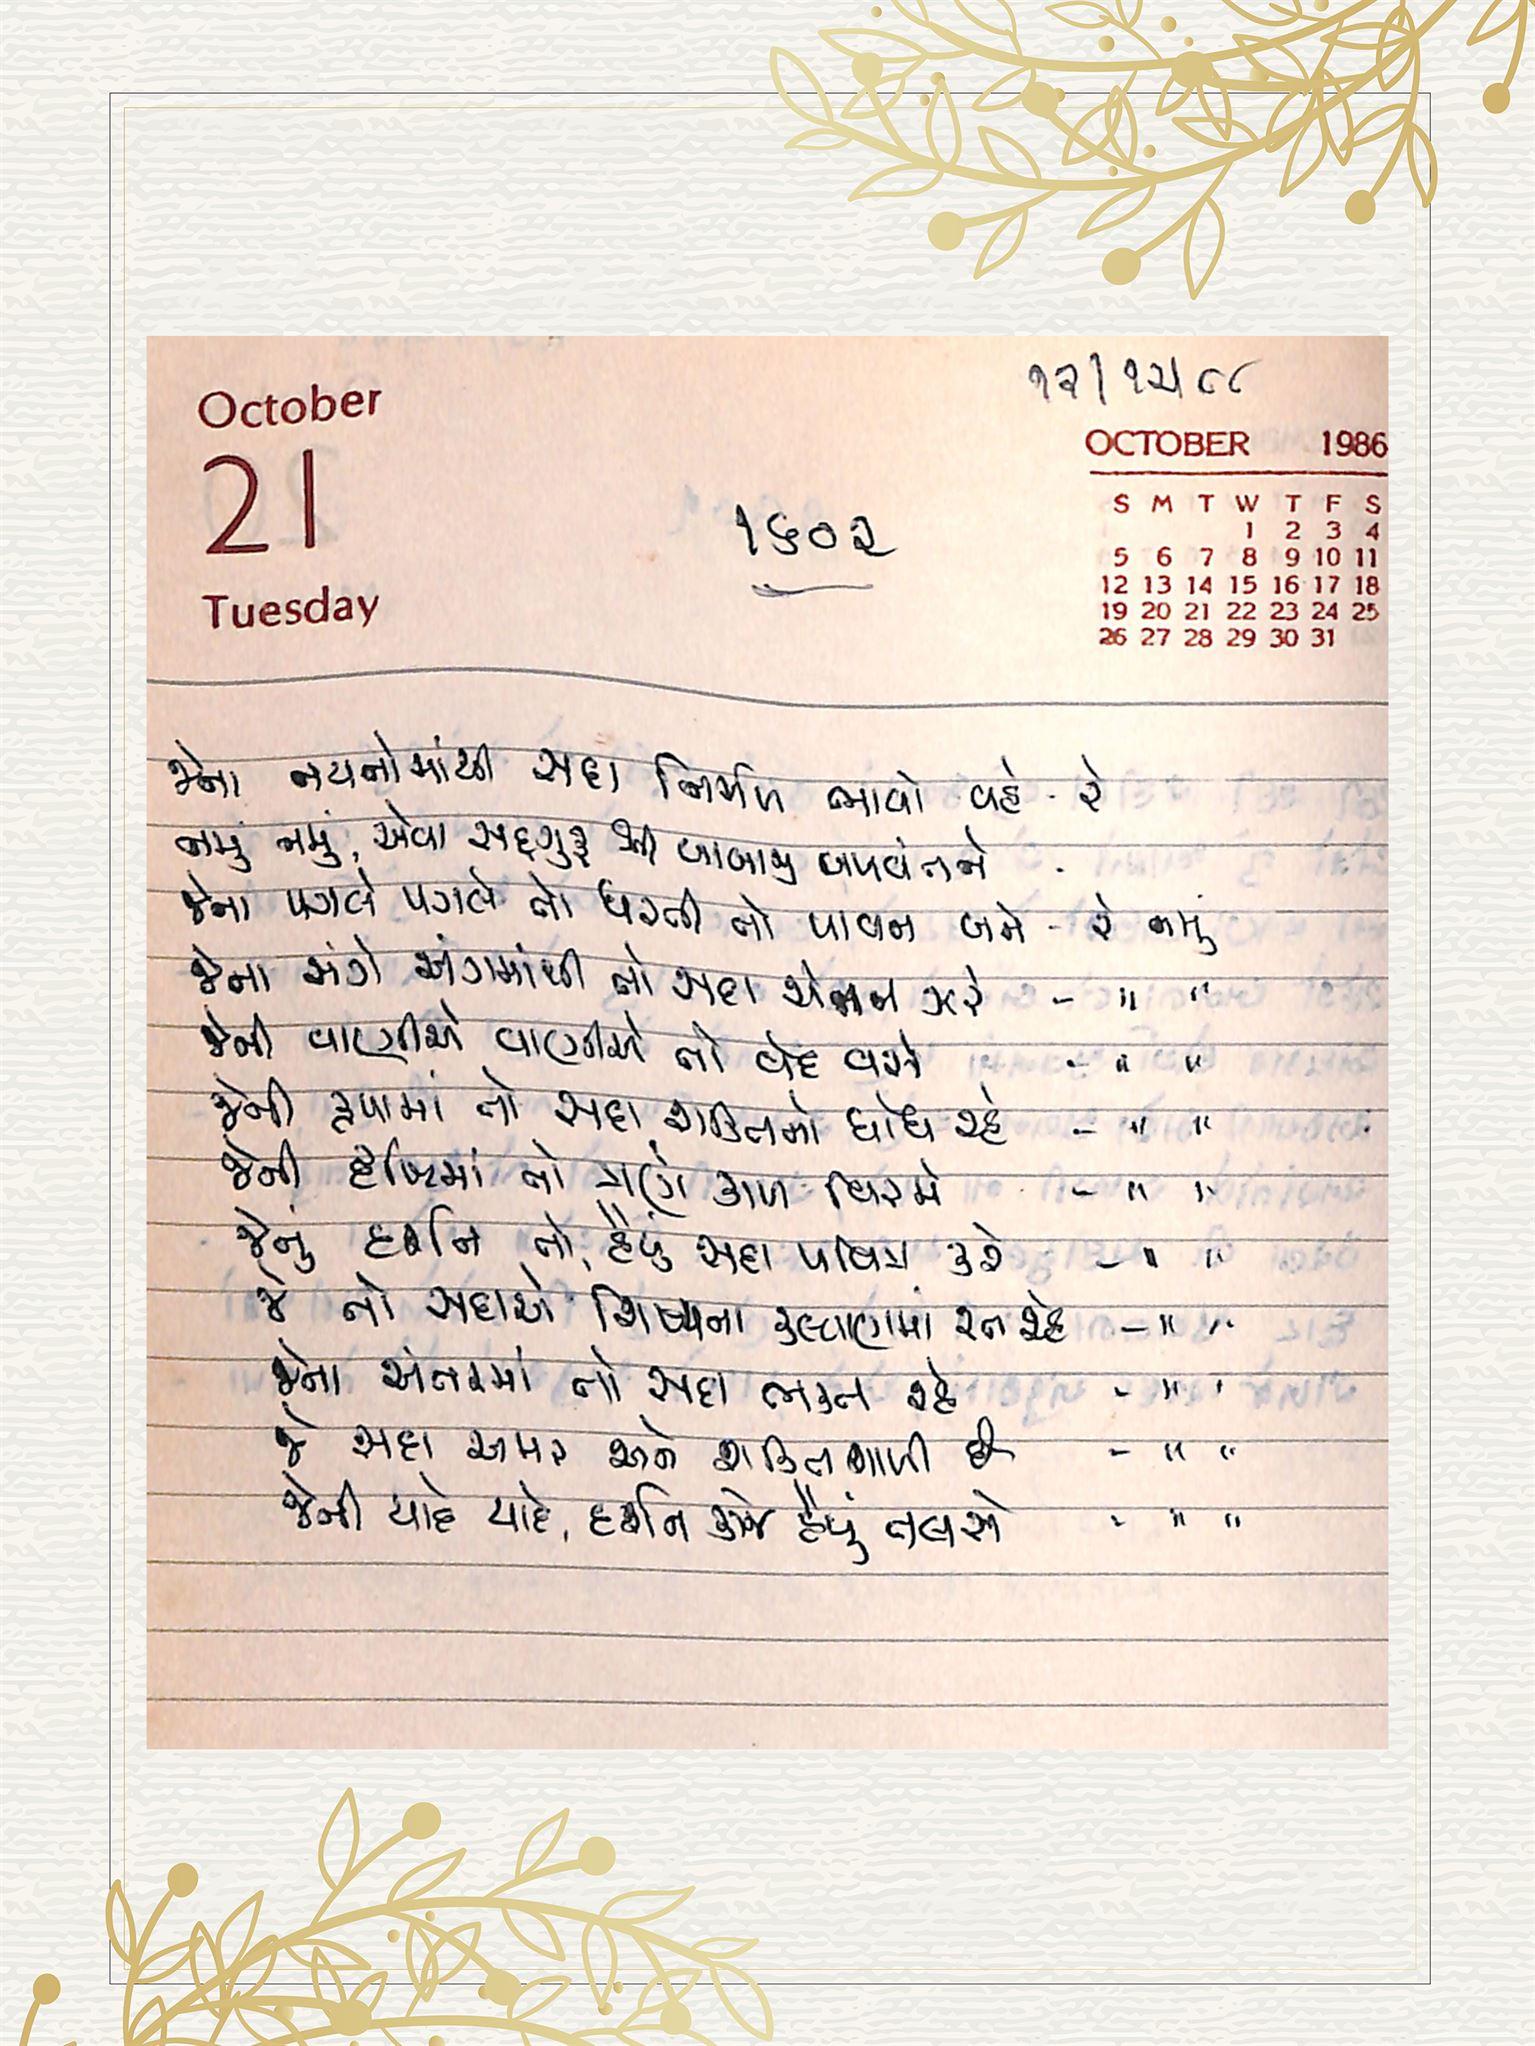 October
21
Tuesday
૧૨/૧૨/૮૮
OCTOBER 1986
S M T W T F S
1 2 3 4
5 6 7 8 9 10 11
12 13 14 15 16 17 18
19 20 21 22 23 24 25
26 27 28 29 30 31
૧૬૦૨
જેના નયનોમાંથી સદા નિર્મળ ભાવો વહે - રે
નમું નમું, એવા સદ્દગુરૂ શ્રી બાબાજી બળવંતને -
જેના પગલે પગલે તો ધરતી તો પાવન બને - રે નમું
જેના અંગે અંગમાંથી તો સદા ચેતન ઝરે - " "
જેની વાણીએ વાણીએ તો વેદ વસે - " "
જેની કૃપામાં તો સદા શક્તિનો ધોધ રહે - " "
જેની દૃષ્ટિમાં તો ત્રણે કાળ વિરમે - " "
જેનું દર્શન તો, હૈયું સદા પવિત્ર કરે - " "
જે તો સદાએ શિષ્યના કલ્યાણમાં રત રહે - " "
જેના અંતરમાં તો સદા ભક્ત રહે - " "
જે સદા અમર અને શક્તિશાળી છે - " "
જેની યાદે યાદે, દર્શન કાજે હૈયું તલસે - " "